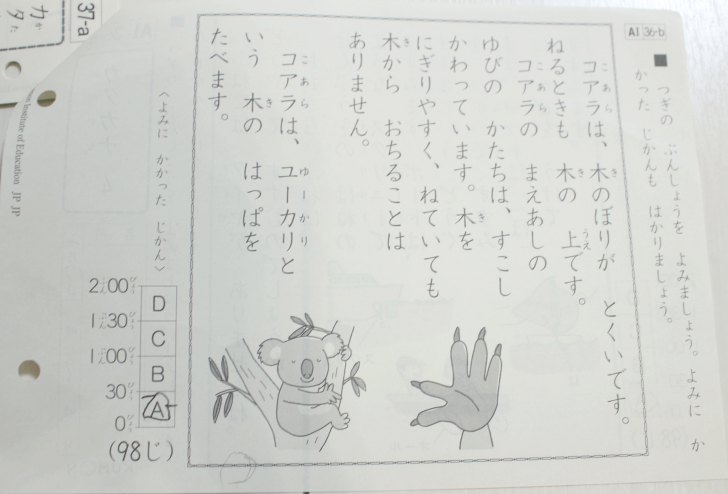 AI 36-b
■ つぎの ぶんしょうを よみましょう。よみに か
かった じかんも はかりましょう。
コアラは、木のぼりが とくいです。
ねるときも 木の 上です。
コアラの まえあしの
ゆびの かたちは、すこし
かわっています。木を
にぎりやすく、ねていても
木から おちることは
ありません。
コアラは、ユーカリと
いう 木の はっぱを
たべます。
〈よみに かかった じかん〉
2ぷん00びょう
D
1ぷん30びょう
C
1ぷん00びょう
B
30びょう
A
0びょう
(98じ)
37-a
カ タ
Institute of Education JP JP